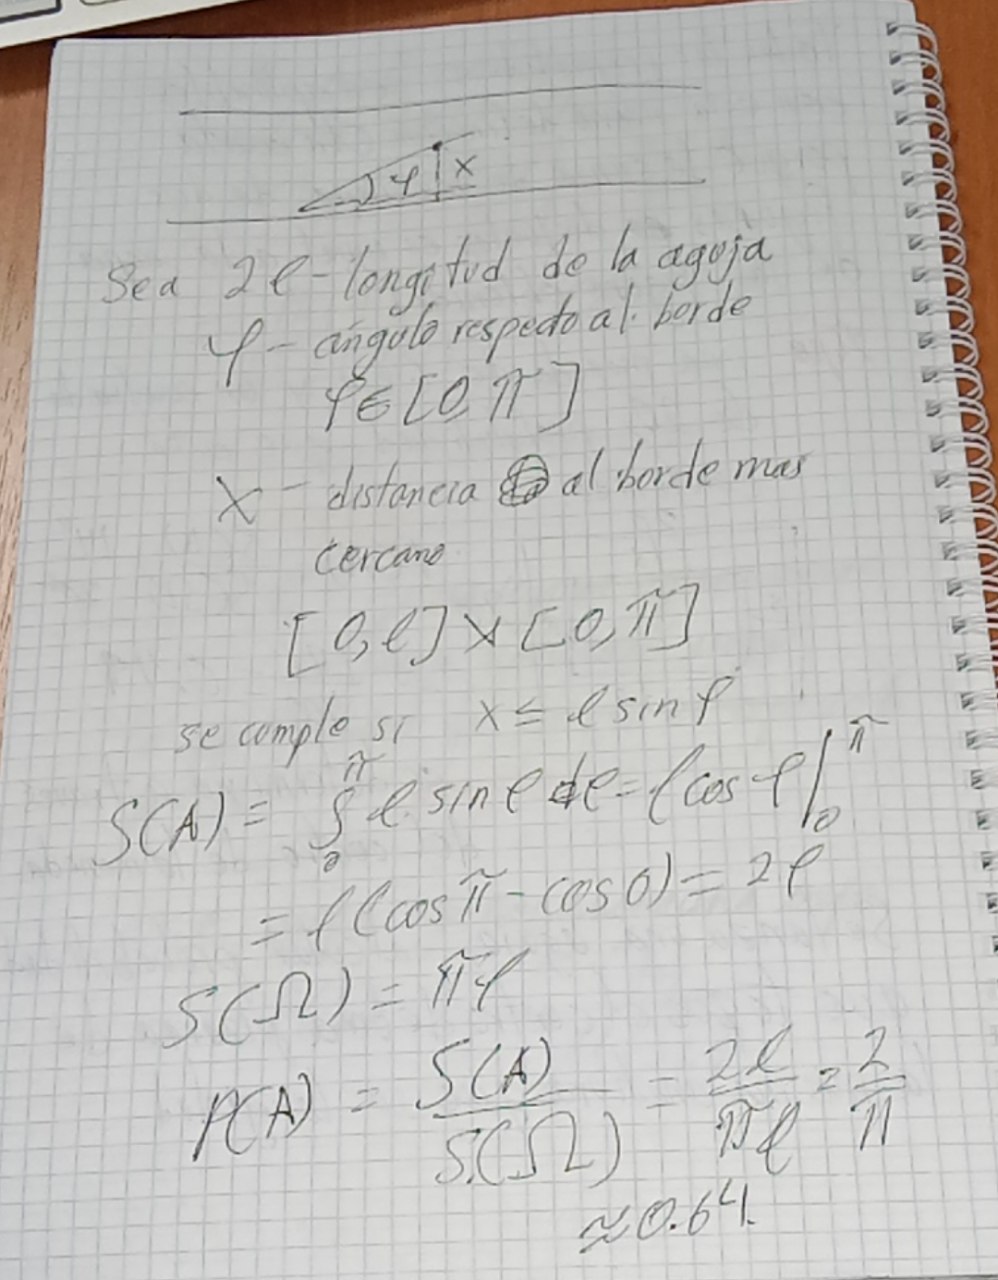 φ x
Sea 2ℓ - longitud de la aguja
φ - ángulo respecto al borde
φ∈[0, π]
X - distancia al borde mas
cercano
[0, ℓ] × [0, π]
se cumple si x ≤ ℓ sin φ
S(A) = ∫₀^π ℓ. sin φ dφ = ℓ cos φ |₀^π
= ℓ (cos π - cos 0) = 2ℓ
S(Ω) = πℓ
P(A) = S(A)/S(Ω) = 2ℓ/πℓ = 2/π
≈ 0.64.